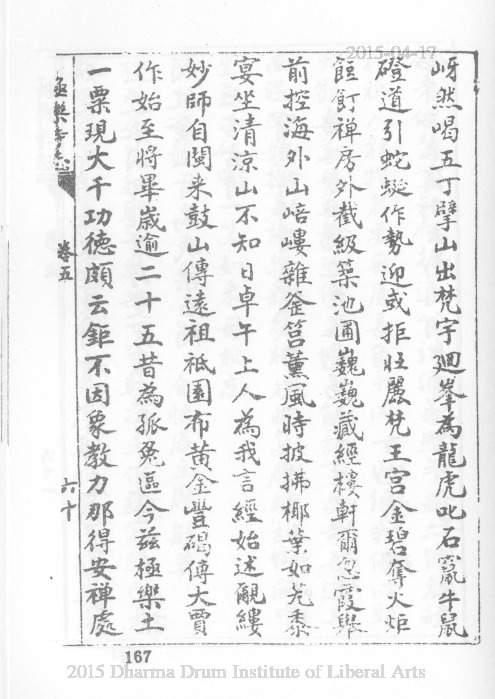 2015-04-17
岈然喝五丁擘山出梵宇迴峯為龍虎叱石竄牛鼠
磴道引蛇蜒作勢迎或拒壯麗梵王宮金碧奪火炬
餖飣禅房外截級築池圃巍巍藏經樓軒爾忽霞舉
前控海外山嵱嶁雜釜筥薰風時披拂椰葉如芃黍
宴坐清涼山不知日卓午上人為我言經始述覼縷
妙師自閩来鼓山傳遠祖祇園布黄金豐碣傳大賈
作始至将畢歲逾二十五昔為狐兔區今兹極樂土
一粟現大千功德頗云鉅不因象教力那得安禅處
極樂寺志
卷五
六十
167
2015 Dharma Drum Institute of Liberal Arts